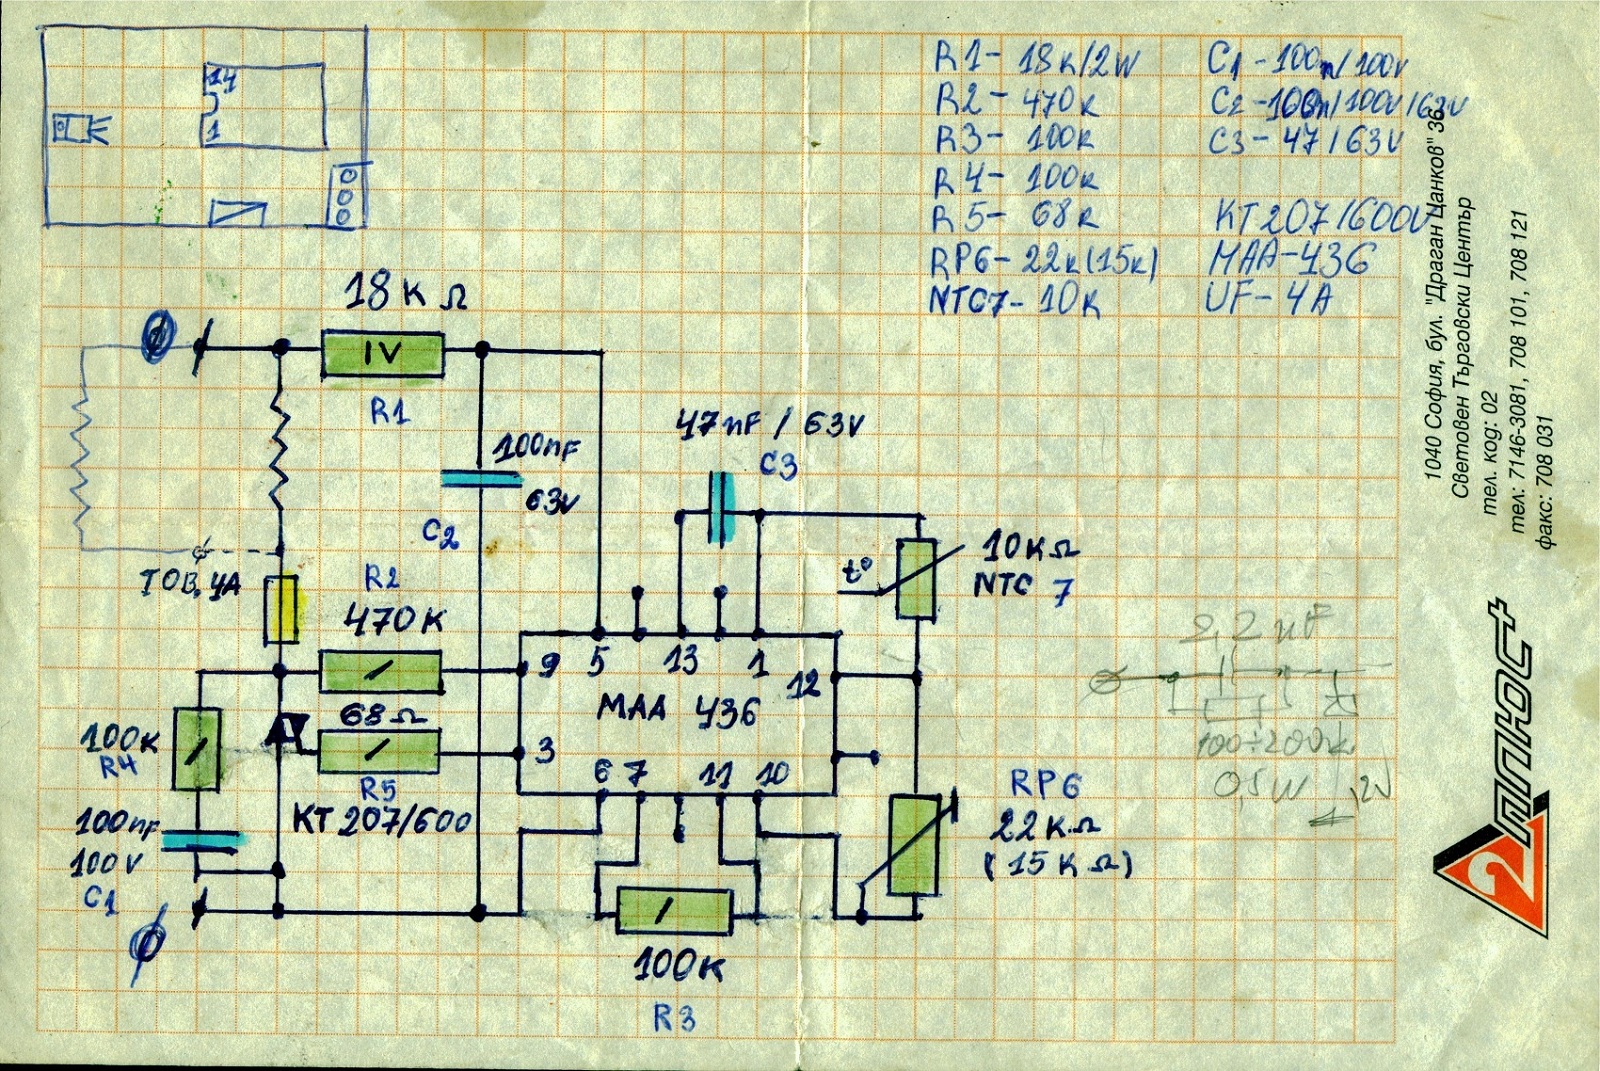 14
1
R1- 18k/2W
R2- 470k
R3- 100k
R4- 100k
R5- 68k
RP6- 22k(15k)
NTC7- 10k
C1 -100n/100V
C2 -100n/100V/63V
C3- 47/63V
KT207/600V
MAA-436
UF- 4A
18K Ω
IV
R1
100nF
63V
C2
47nF / 63V
C3
t°
10KΩ
NTC 7
ТОВ. 4A
R2
470K
9
5
13
1
12
MAA 436
68Ω
3
6 7
11 10
100K
R4
R5
KT 207/600
100nF
100V
C1
RP6
22KΩ
(15KΩ)
100K
R3
2,2 µF
100÷200k
0,5W
12V
1040 София, бул. "Драган Цанков" 36
Световен Търговски Център
тел. код: 02
тел: 7146-3081, 708 101, 708 121
факс: 708 031
2 ПЛЮС+